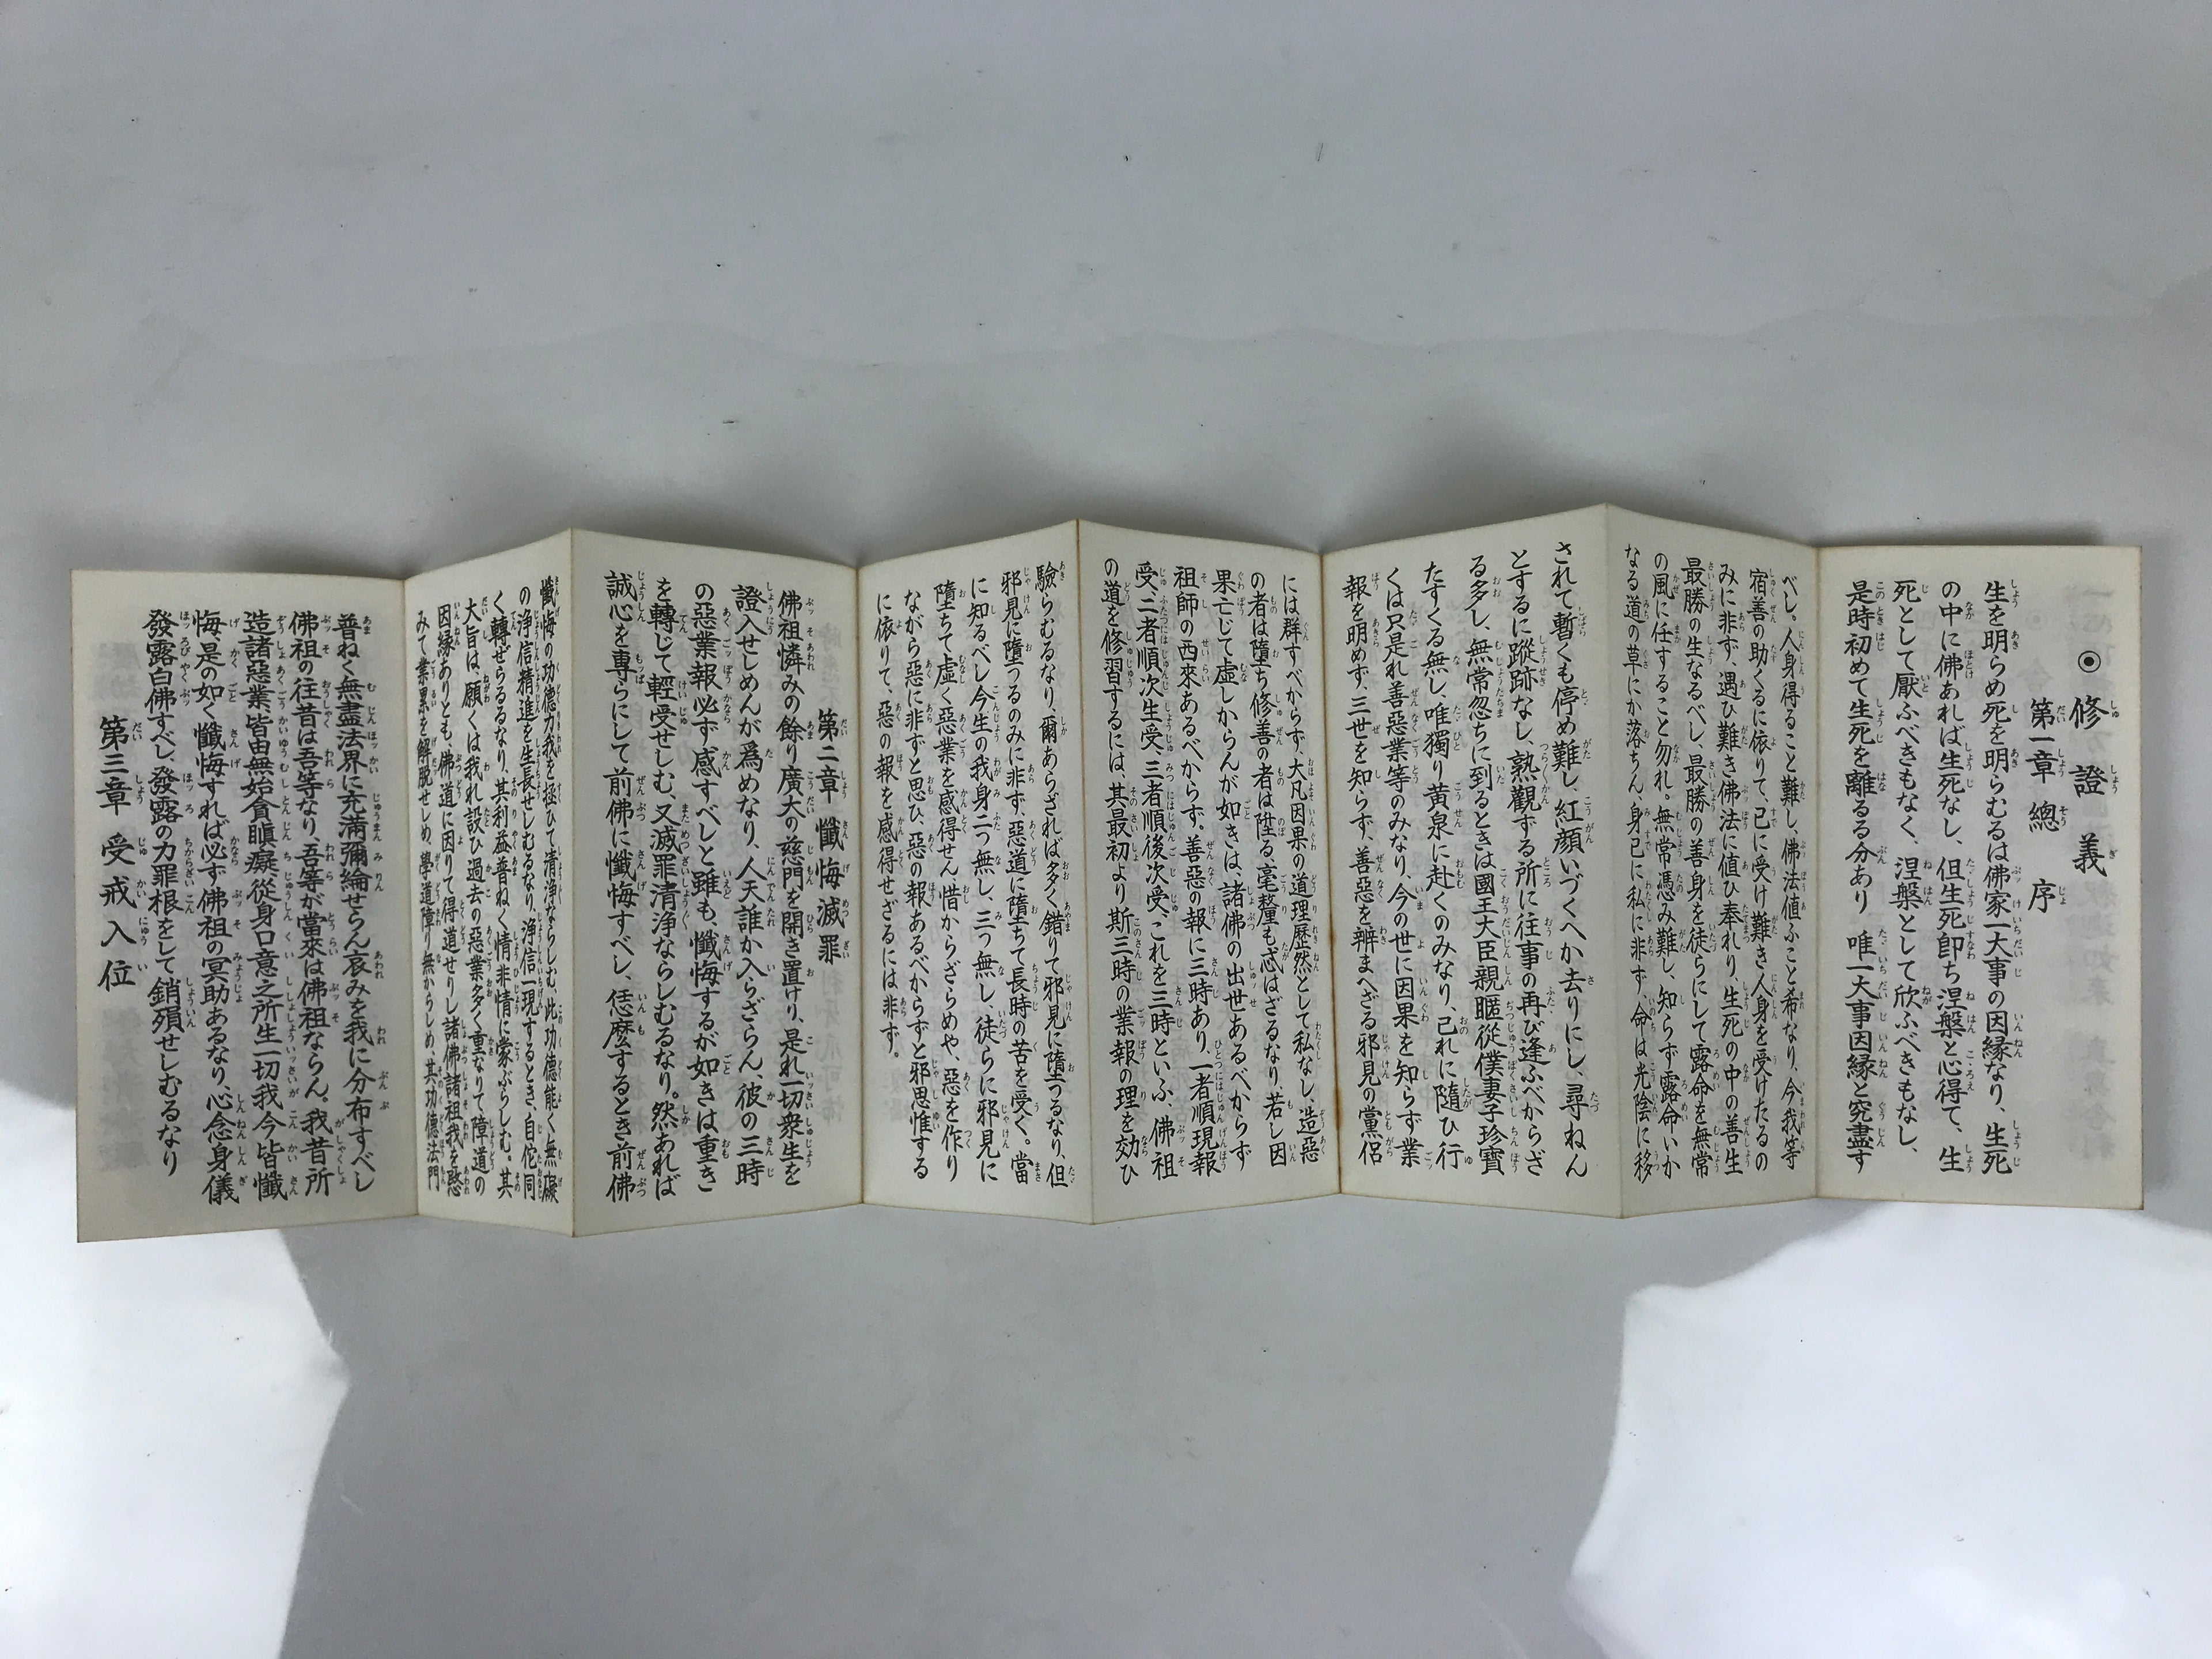 ◉修證義
第一章 總序
生を明らめ死を明らむるは佛家一大事の因縁なり、生死
の中に佛あれば生死なし、但生死卽ち涅槃と心得て、生
死として厭ふべきもなく、涅槃として欣ふべきもなし、
是時初めて生死を離るる分あり 唯一大事因縁と究盡す
べし。人身得ること難し、佛法値ふこと希なり、今我等
宿善の助くるに依りて、已に受け難き人身を受けたるの
みに非ず、遇ひ難き佛法に値ひ奉れり、生死の中の善生
最勝の生なるべし、最勝の善身を徒らにして露命を無常
の風に任すること勿れ。無常憑み難し、知らず露命いか
なる道の草にか落ちん、身已に私に非ず、命は光陰に移
されて暫くも停め難し、紅顔いづくへか去りにし、尋ねん
とするに蹤跡なし、熟觀ずる所に往事の再び逢ふべからざ
る多し、無常忽ちに到るときは國王大臣親暱從僕妻子珍寶
たすくる無し、唯獨り黄泉に赴くのみなり、己れに隨ひ行
くは只是れ善惡業等のみなり、今の世に因果を知らず業
報を明めず、三世を知らず、善惡を辨まへざる邪見の黨侶
には群すべからず、大凡因果の道理歴然として私なし、造惡
の者は墮ち修善の者は陞る、毫釐も忒はざるなり、若し因
果亡じて虛しからんが如きは、諸佛の出世あるべからず
祖師の西來あるべからず。善惡の報に三時あり、一者順現報
受、二者順次生受、三者順後次受、これを三時といふ、佛祖
の道を修習するには、其最初より斯三時の業報の理を効ひ
驗らむるなり、爾あらざれば多く錯りて邪見に墮つるなり、但
邪見に墮つるのみに非ず、惡道に墮ちて長時の苦を受く。當
に知るべし今生の我身二つ無し、三つ無し、徒らに邪見に
墮ちて虛く惡業を感得せん、惜からざらめや、惡を作り
ながら惡に非ずと思ひ、惡の報あるべからずと邪思惟する
に依りて、惡の報を感得せざるには非ず。
第二章 懺悔滅罪
佛祖憐みの餘り廣大の慈門を開き置けり、是れ一切衆生を
證入せしめんが爲めなり、人天誰か入らざらん、彼の三時
の惡業報必ず感ずべしと雖も、懺悔するが如きは重き
を轉じて輕受せしむ、又滅罪清浄ならしむるなり。然あれば
誠心を專らにして前佛に懺悔すべし、恁麼するとき前佛
懺悔の功德力我を拯ひて清浄ならしむ、此功德能く無礙
の浄信精進を生長せしむるなり、浄信一現するとき、自佗同
く轉ぜらるるなり、其利益普ねく情非情に蒙ぶらしむ。其
大旨は、願くは我れ設ひ過去の惡業多く重なりて障道の
因縁ありとも、佛道に因りて得道せりし諸佛諸祖我を愍
みて業累を解脱せしめ、學道障り無からしめ、其功德法門
普ねく無盡法界に充滿彌綸せらん哀みを我に分布すべし
佛祖の往昔は吾等なり、吾等が當來は佛祖ならん。我昔所
造諸惡業、皆由無始貪瞋癡、從身口意之所生一切我今皆懺
悔、是の如く懺悔すれば必ず佛祖の冥助あるなり、心念身儀
發露白佛すべし、發露の力罪根をして銷殞せしむるなり
第三章 受戒入位